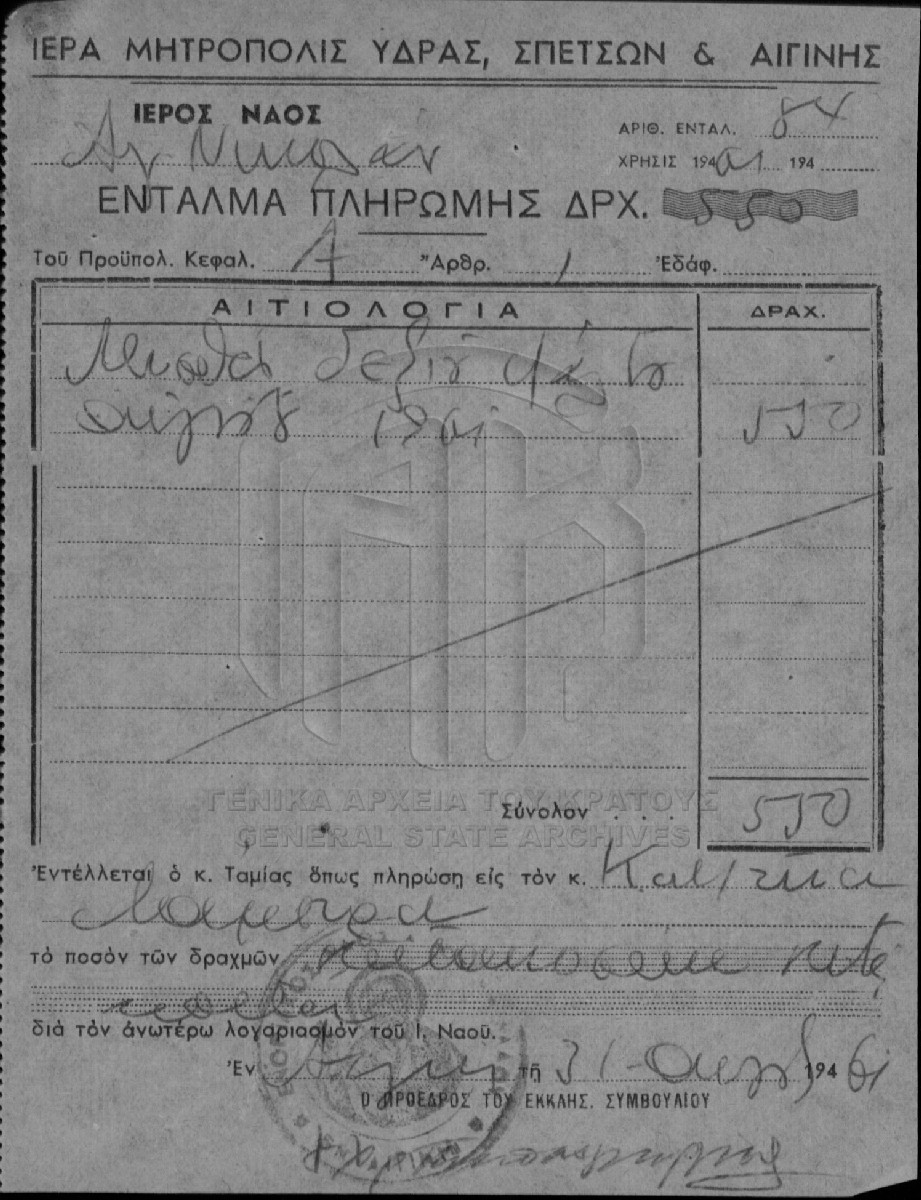 ΙΕΡΑ ΜΗΤΡΟΠΟΛΙΣ ΥΔΡΑΣ, ΣΠΕΤΣΩΝ & ΑΙΓΙΝΗΣ
ΙΕΡΟΣ ΝΑΟΣ
ΑΡΙΘ. ΕΝΤΑΛ. 84
Αγ. Νικολάου
ΧΡΗΣΙΣ 194 61 194
ΕΝΤΑΛΜΑ ΠΛΗΡΩΜΗΣ ΔΡΧ. 550
Τοῦ Προϋπολ. Κεφαλ. Α Ἄρθρ. 1 Ἐδάφ.
ΑΙΤΙΟΛΟΓΙΑ ΔΡΑΧ.
Μισθοί δεξιού ψάλτου
1961 550
ΓΕΝΙΚΑ ΑΡΧΕΙΑ ΤΟΥ ΚΡΑΤΟΥΣ
Σύνολον . . . 550
GENERAL STATE ARCHIVES
Ἐντέλλεται ὁ κ. Ταμίας ὅπως πληρώση εἰς τὸν κ.
τὸ ποσόν τῶν δραχμῶν πεντακοσίων πεντή
κοντα
διά τὸν ἀνωτέρω λογαριασμόν τοῦ Ι. Ναοῦ.
Ἐν Αιγίνη τῇ 31 194 61
Ο ΠΡΟΕΔΡΟΣ ΤΟΥ ΕΚΚΛΗΣ. ΣΥΜΒΟΥΛΙΟΥ